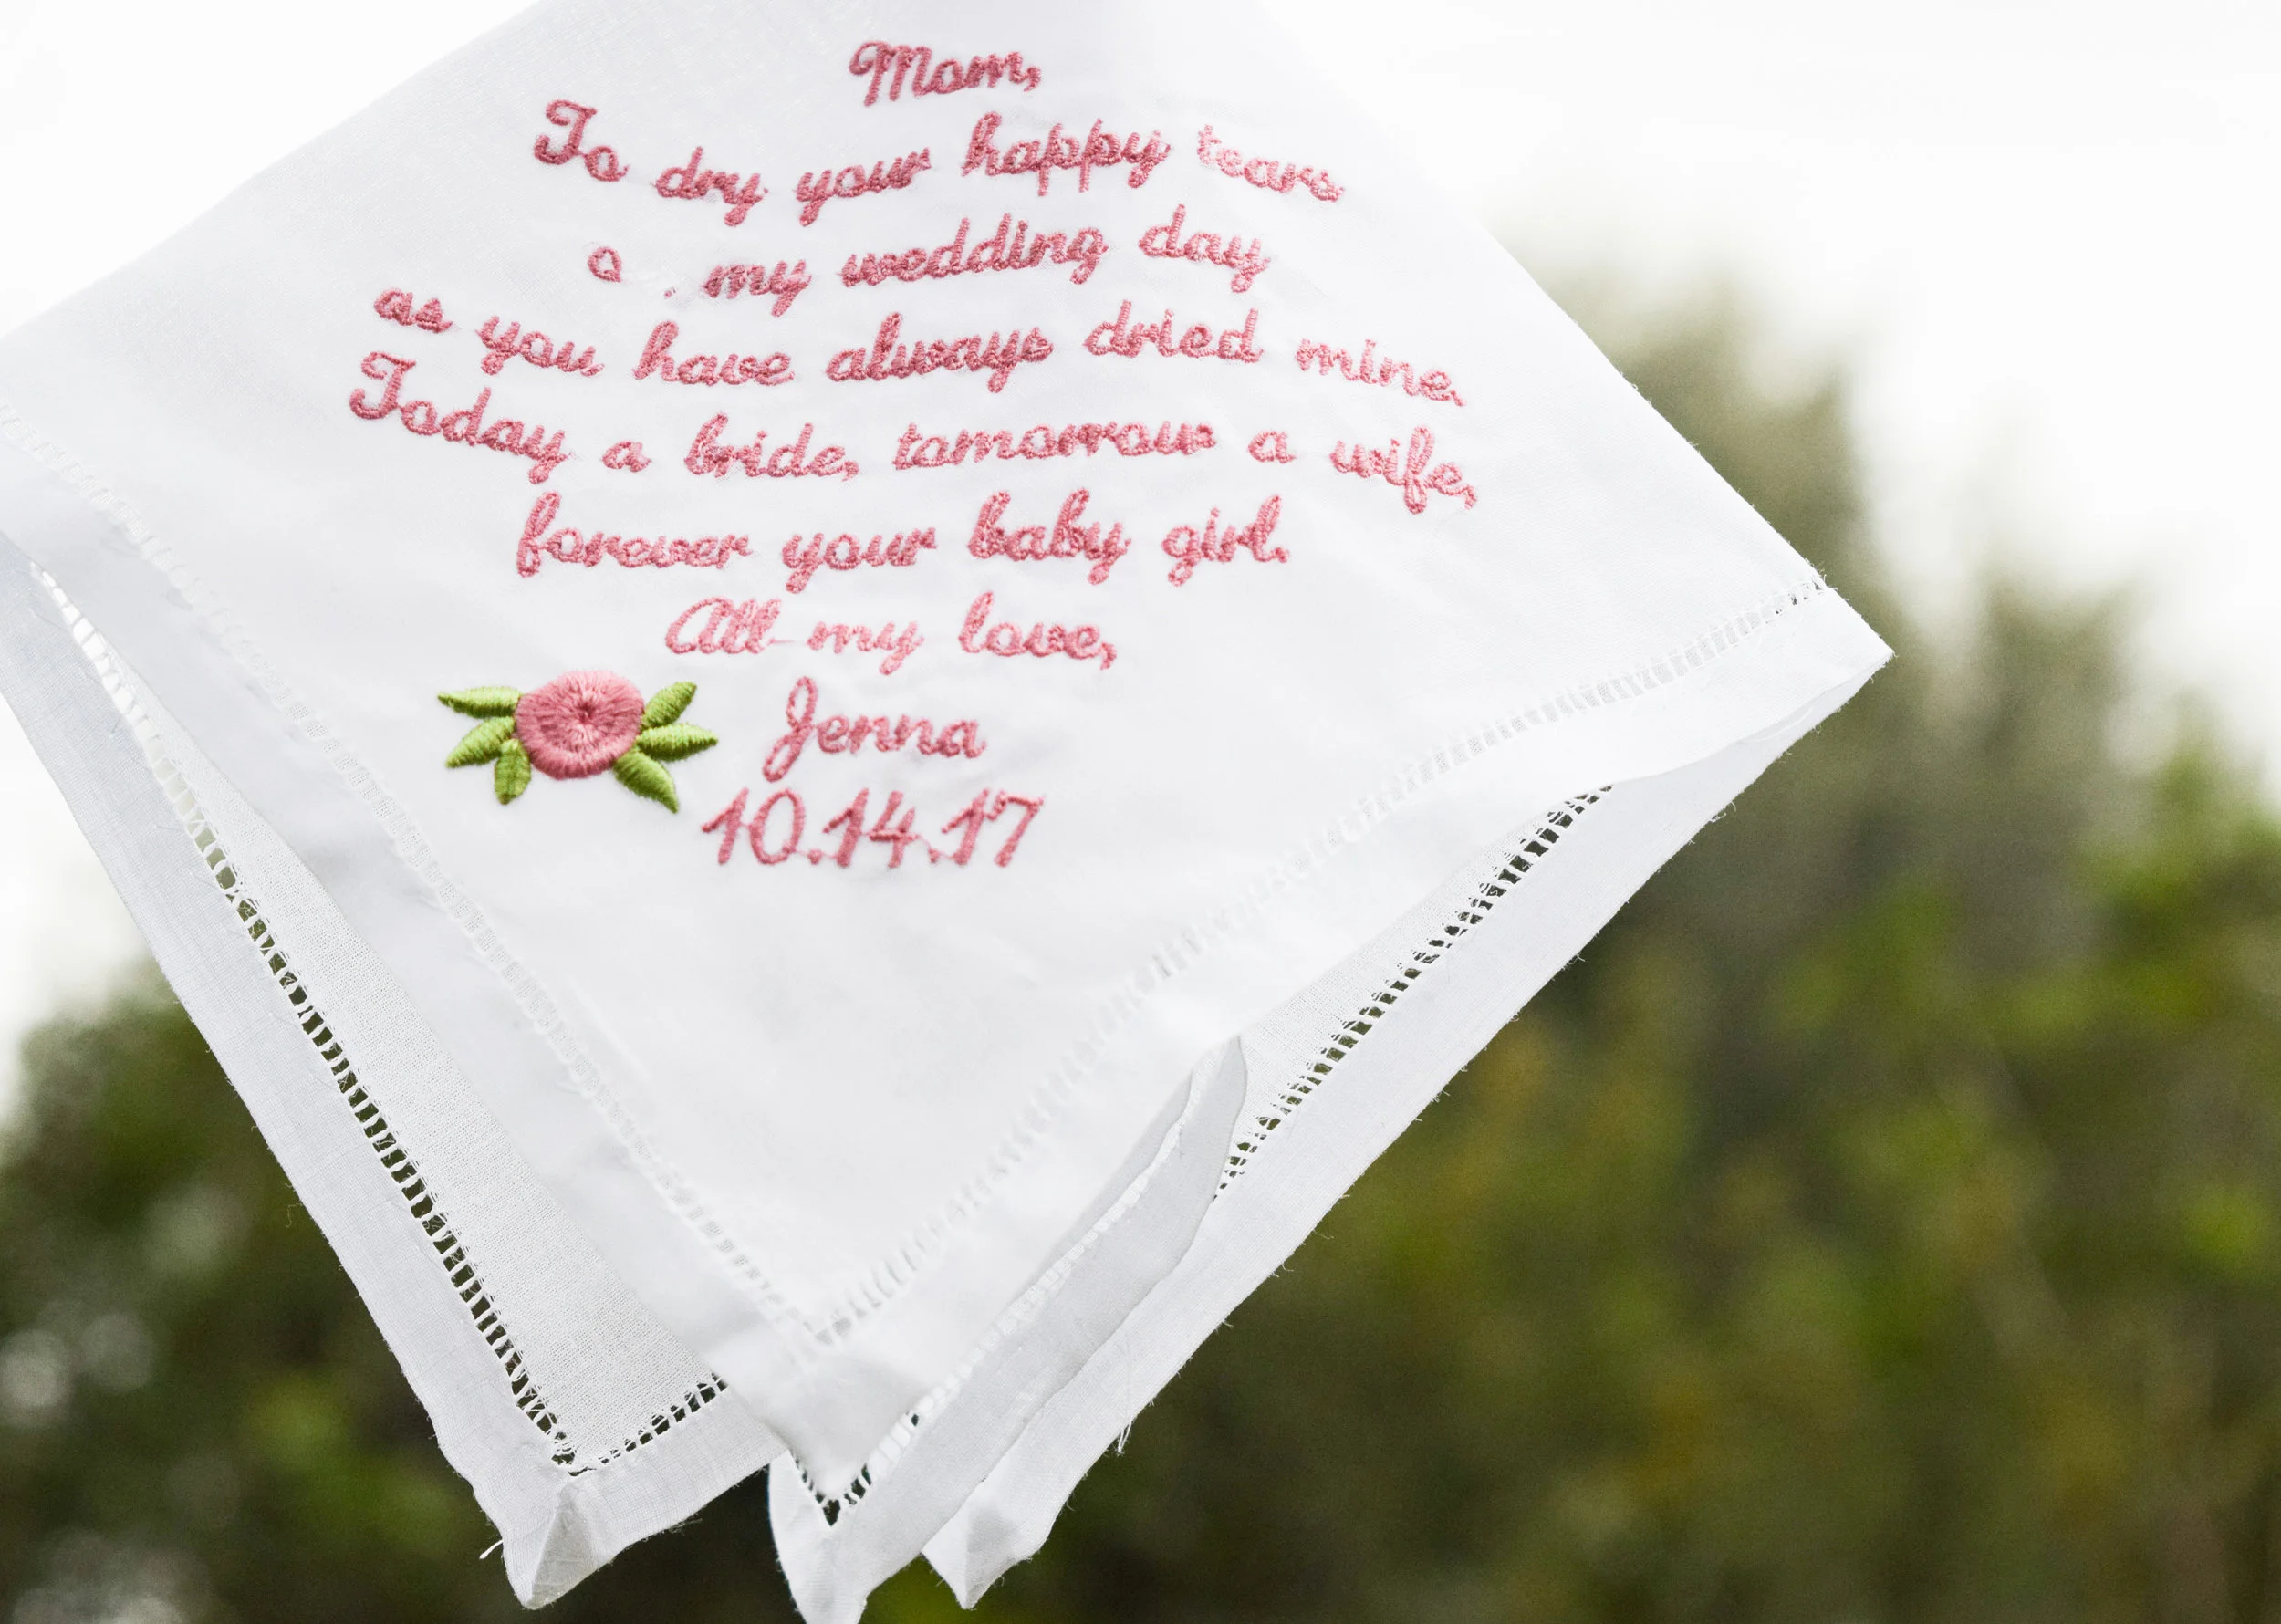 Mom,
To dry your happy tears
my wedding day
as you have always dried mine.
Today a bride, tomorrow a wife,
forever your baby girl.
All my love,
Jenna
10.14.17